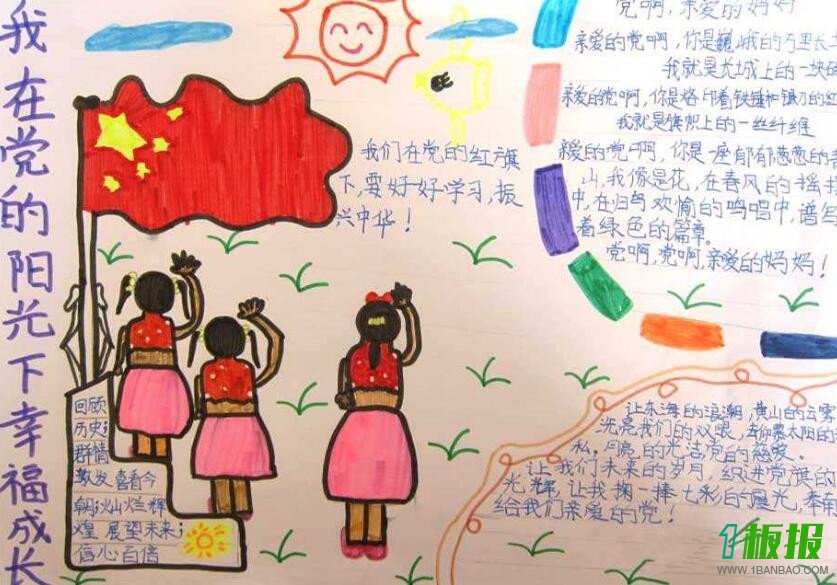 我在党的阳光下幸福成长
我们在党的红旗
下,要好好学习,振
兴中华!
回顾
历史;
群情
激发,喜看今
朝;灿烂辉
煌,展望未来;
信心百倍
党啊,亲爱的妈妈
亲爱的党啊,你是巍峨的万里长
我就是长城上的一块
亲爱的党啊,你是烙印着铁锤和镰刀的红
我就是旗帜上的一丝纤维
亲爱的党啊,你是一座郁郁葱葱的
山,我像是花,在春风的摇
中,在归鸟欢愉的鸣唱中,谱
着绿色的篇章。
党啊,党啊,亲爱的妈妈!
让东海的浪潮,黄山的云雾
洗亮我们的双眼,去仰慕太阳的
私,月亮的光洁党的慈爱。
让我们未来的岁月,织进党旗的
光辉,让我掬一捧七彩的晨光,奉
给我们亲爱的党!
1板报
WWW.1BANBAO.COM